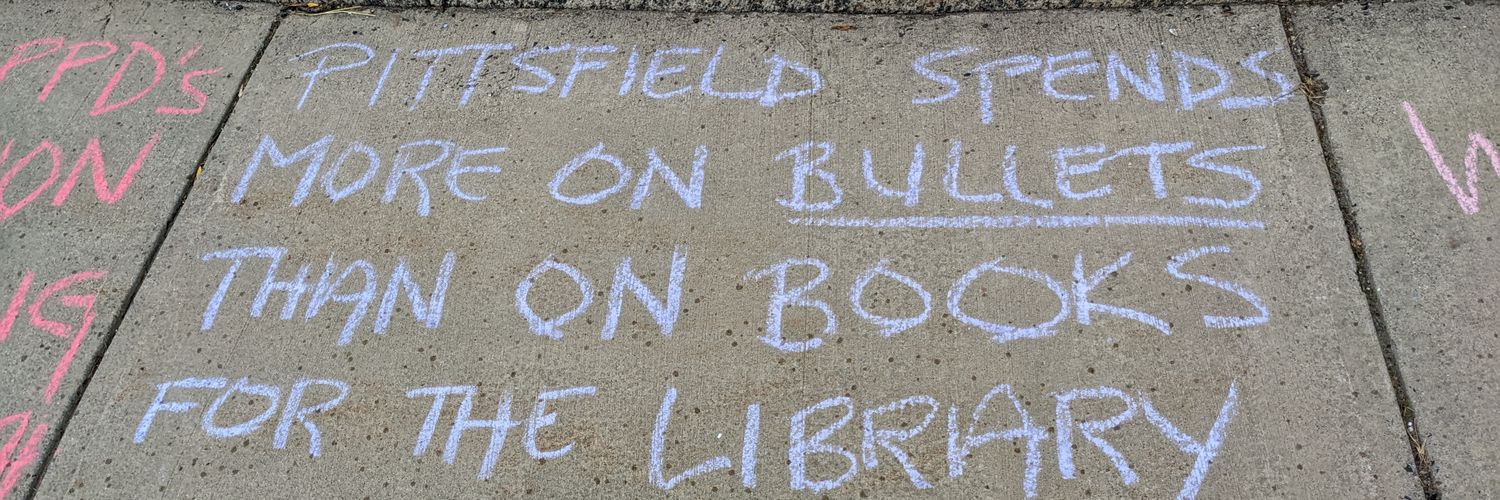 PPD's
PITTSFIELD SPENDS
MORE ON BULLETS
THAN ON BOOKS
FOR THE LIBRARY